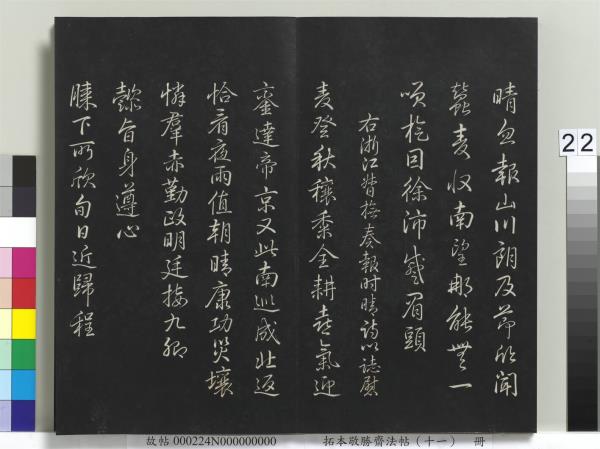 晴忽報山川朗及節欣聞
蠶麦收南望那能無一
徐沛眉頭
右浙江督撫奏報時晴詩以誌慰
麦登秋穰黍全耕喜氣迎
鑾達帝京又此南巡成北返
恰看夜雨值朝晴康功災壤
憐羣赤勤政明廷接九卿
懿旨身遵心
膝下所欣旬日近歸程
22
故帖 000224N000000000 拓本敬勝齋法帖（十一） 冊